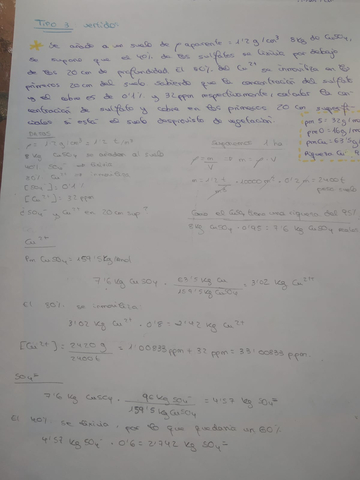 Tipo 3 verídico
* Se añade a un suelo de ρ aparente = 1'2 g/cm³ 8 kg de CuSO₄,
se supone que el 40% de los sulfatos se lixivia por debajo
de los 20 cm de profundidad. El 80% del Cu²⁺ se inmoviliza en los
primeros 20 cm del suelo. Sabiendo que la concentración del sulfato
y el cobre es de 0'1% y 32 ppm respectivamente, calcular la
concentración de sulfato y cobre en los primeros 20 cm
si está el suelo desprovisto de vegetación.
pm S = 32 g/mol
pm O = 16 g/
pm Cu = 63'5 g/
Riqueza Cu
DATOS
ρ = 1'2 g/cm³ = 1'2 t/m³
8 kg CuSO₄ se añaden al suelo
40% SO₄²⁻ se lixivia
80% Cu²⁺ se inmoviliza
[SO₄²⁻] = 0'1%
[Cu²⁺] = 32 ppm
¿SO₄²⁻ y Cu²⁺ en 20 cm sup?
Suponemos 1 ha
ρ = m/V ⇒ m = ρ · V
m = 1'2 t/m³ · 10000 m² · 0'2 m = 2400 t
peso suelo
Como el CuSO₄ tiene una riqueza del 95%
8 kg CuSO₄ · 0'95 = 7'6 kg CuSO₄
Cu²⁺
Pm CuSO₄ = 159'5 kg/kmol
7'6 kg CuSO₄ · 63'5 kg Cu / 159'5 kg CuSO₄ = 3'02 kg Cu²⁺
El 80% se inmoviliza:
3'02 kg Cu²⁺ · 0'8 = 2'42 kg Cu²⁺
[Cu²⁺] = 2420 g / 2400 t = 1'00833 ppm + 32 ppm = 33'00833 ppm.
SO₄²⁻
7'6 kg CuSO₄ · 96 kg SO₄²⁻ / 159'5 kg CuSO₄ = 4'57 kg SO₄²⁻
El 40% se lixivia, por lo que quedaría un 60%
4'57 kg SO₄²⁻ · 0'6 = 2'742 kg SO₄²⁻